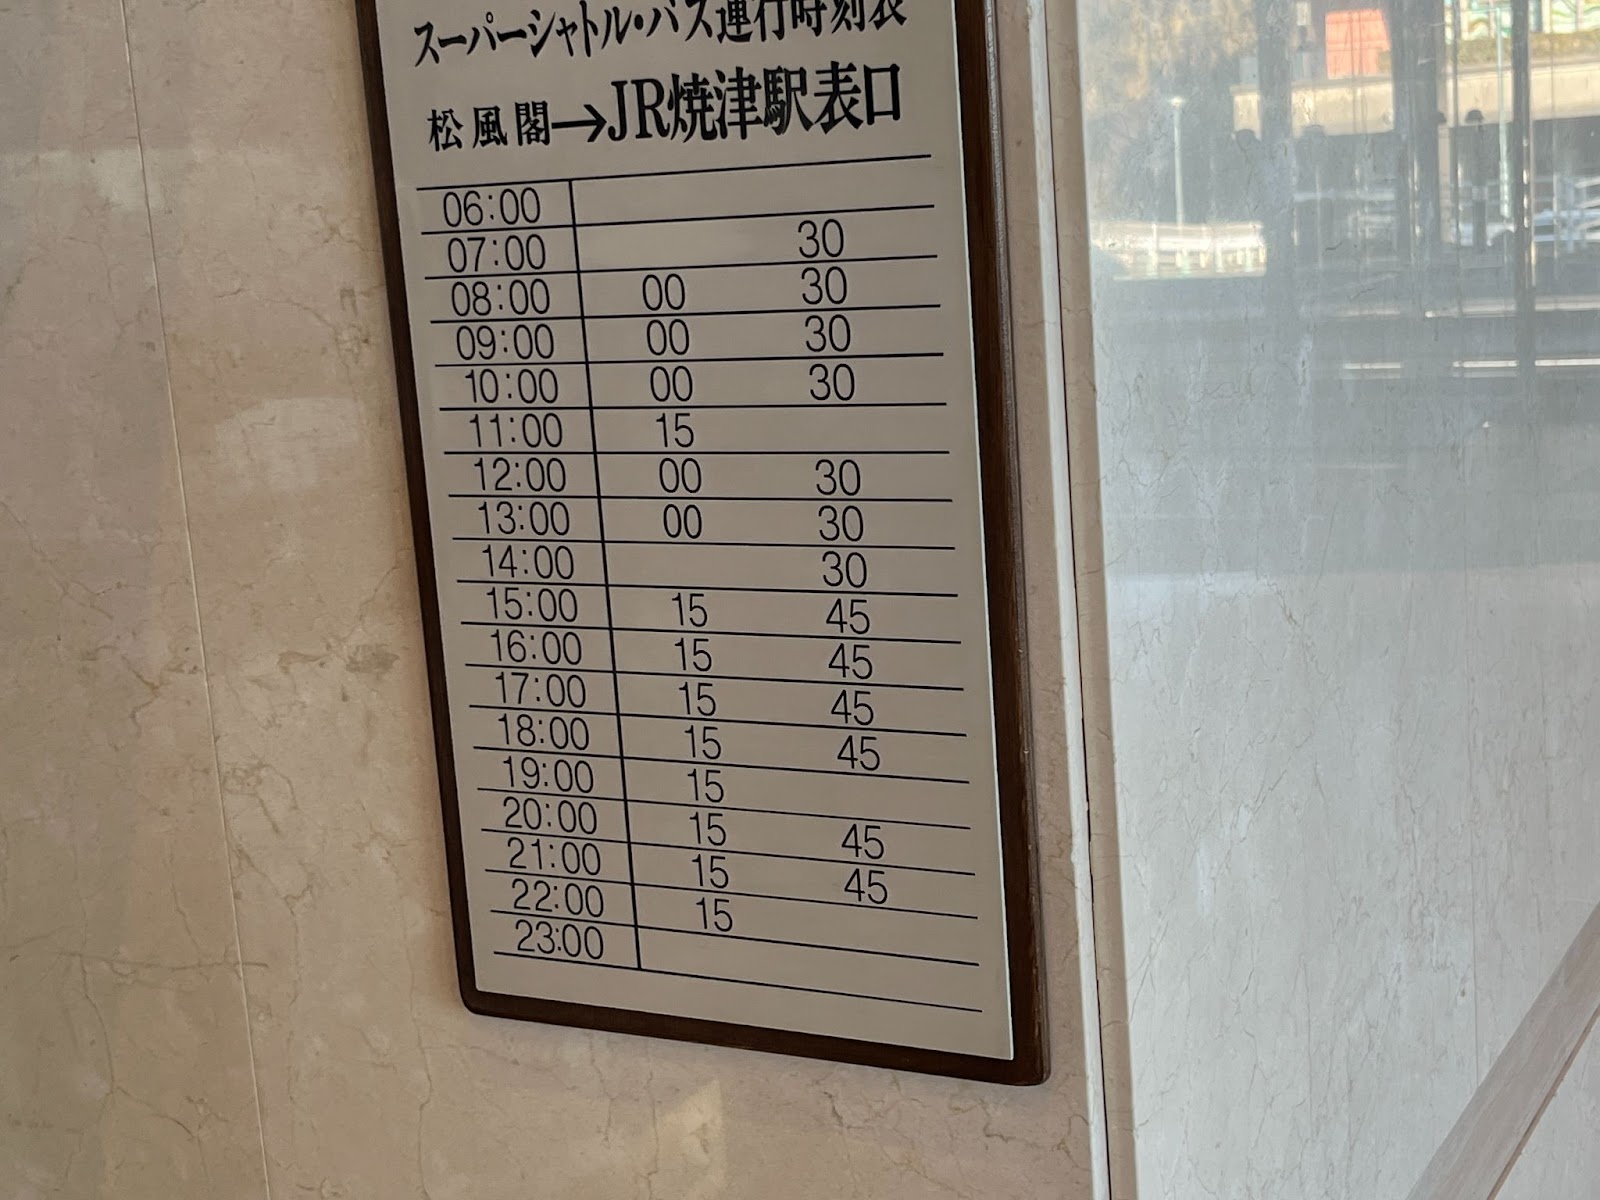 スーパーシャトル・バス運行時刻表
松風閣→JR焼津駅表口
06:00
07:00 30
08:00 00 30
09:00 00 30
10:00 00 30
11:00 15
12:00 00 30
13:00 00 30
14:00 30
15:00 15 45
16:00 15 45
17:00 15 45
18:00 15 45
19:00 15
20:00 15 45
21:00 15 45
22:00 15
23:00